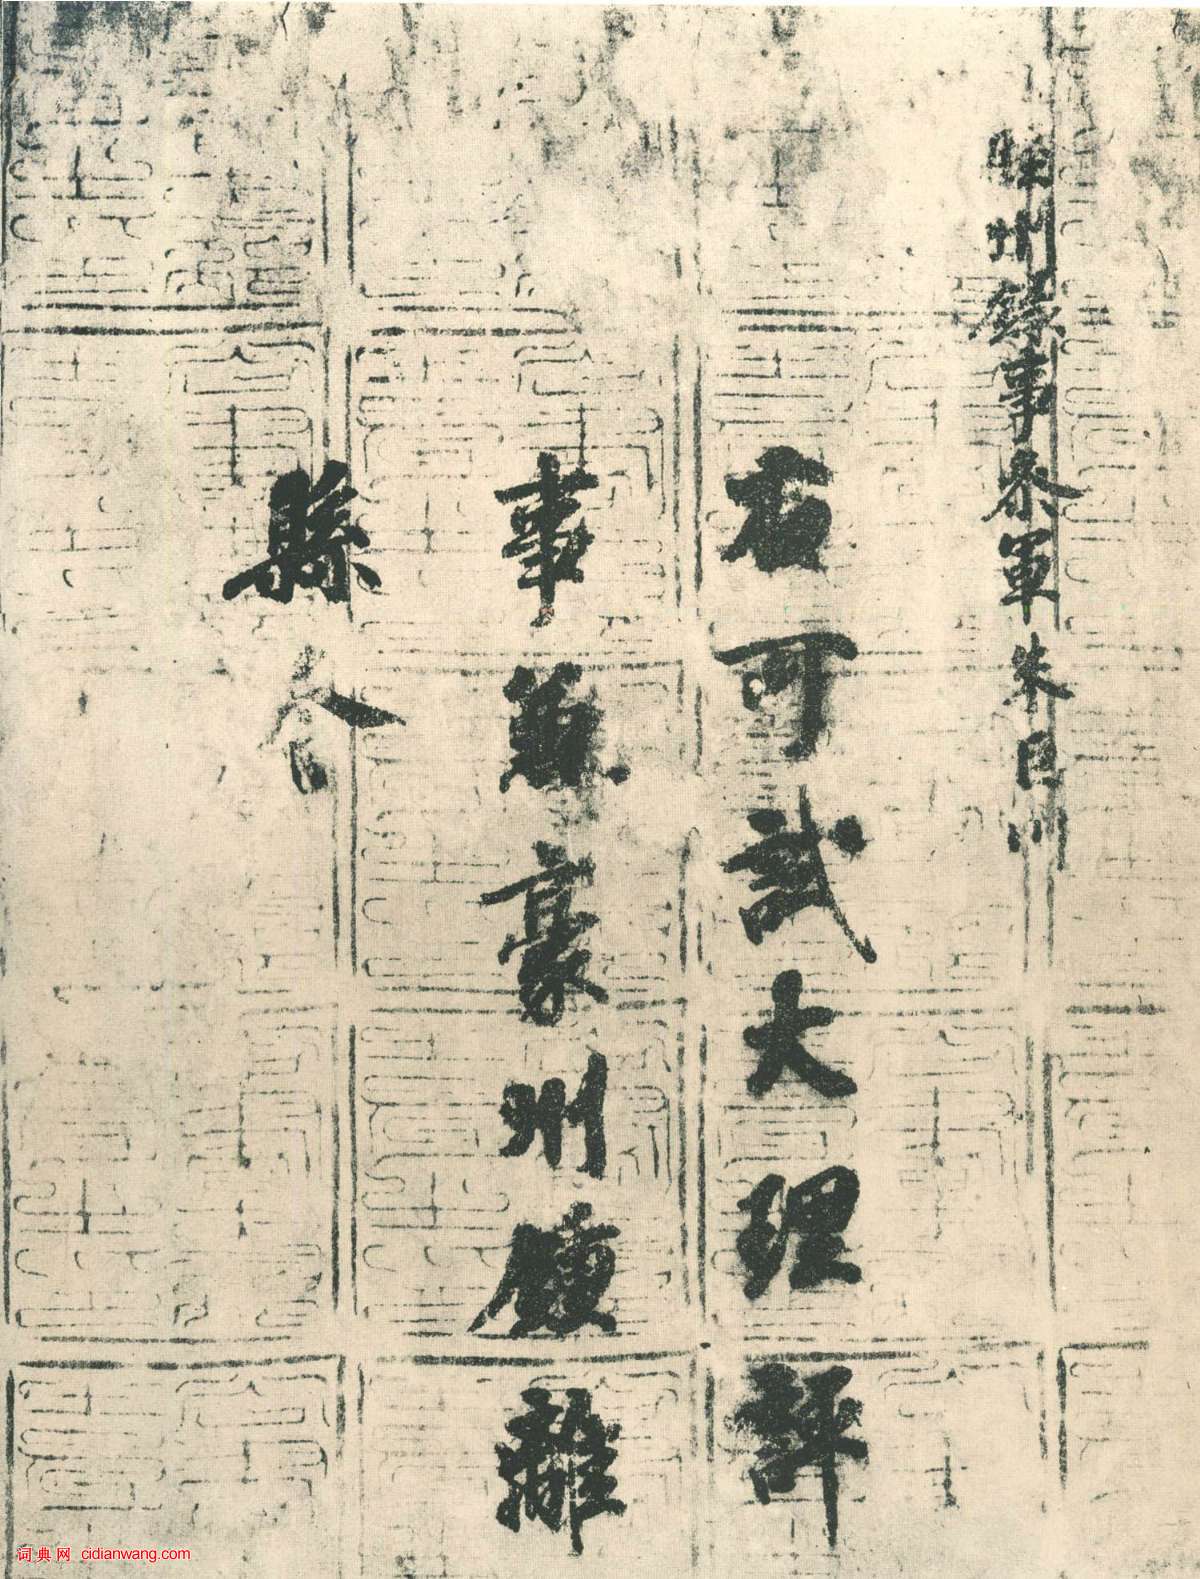 睦州錄事參軍朱巨川
右可試大理評
事兼豪州鍾離
縣令
词典网 cidianwang.com